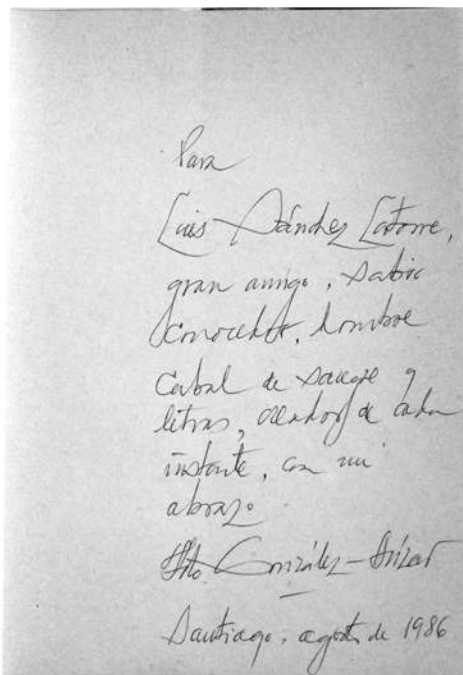 Para
Luis Sánchez Latorre,
gran amigo, sabio
conocedor, hombre
cabal de sangre y
letras, creador de cada
instante, con mi
abrazo.
González-
Santiago, agosto de 1986